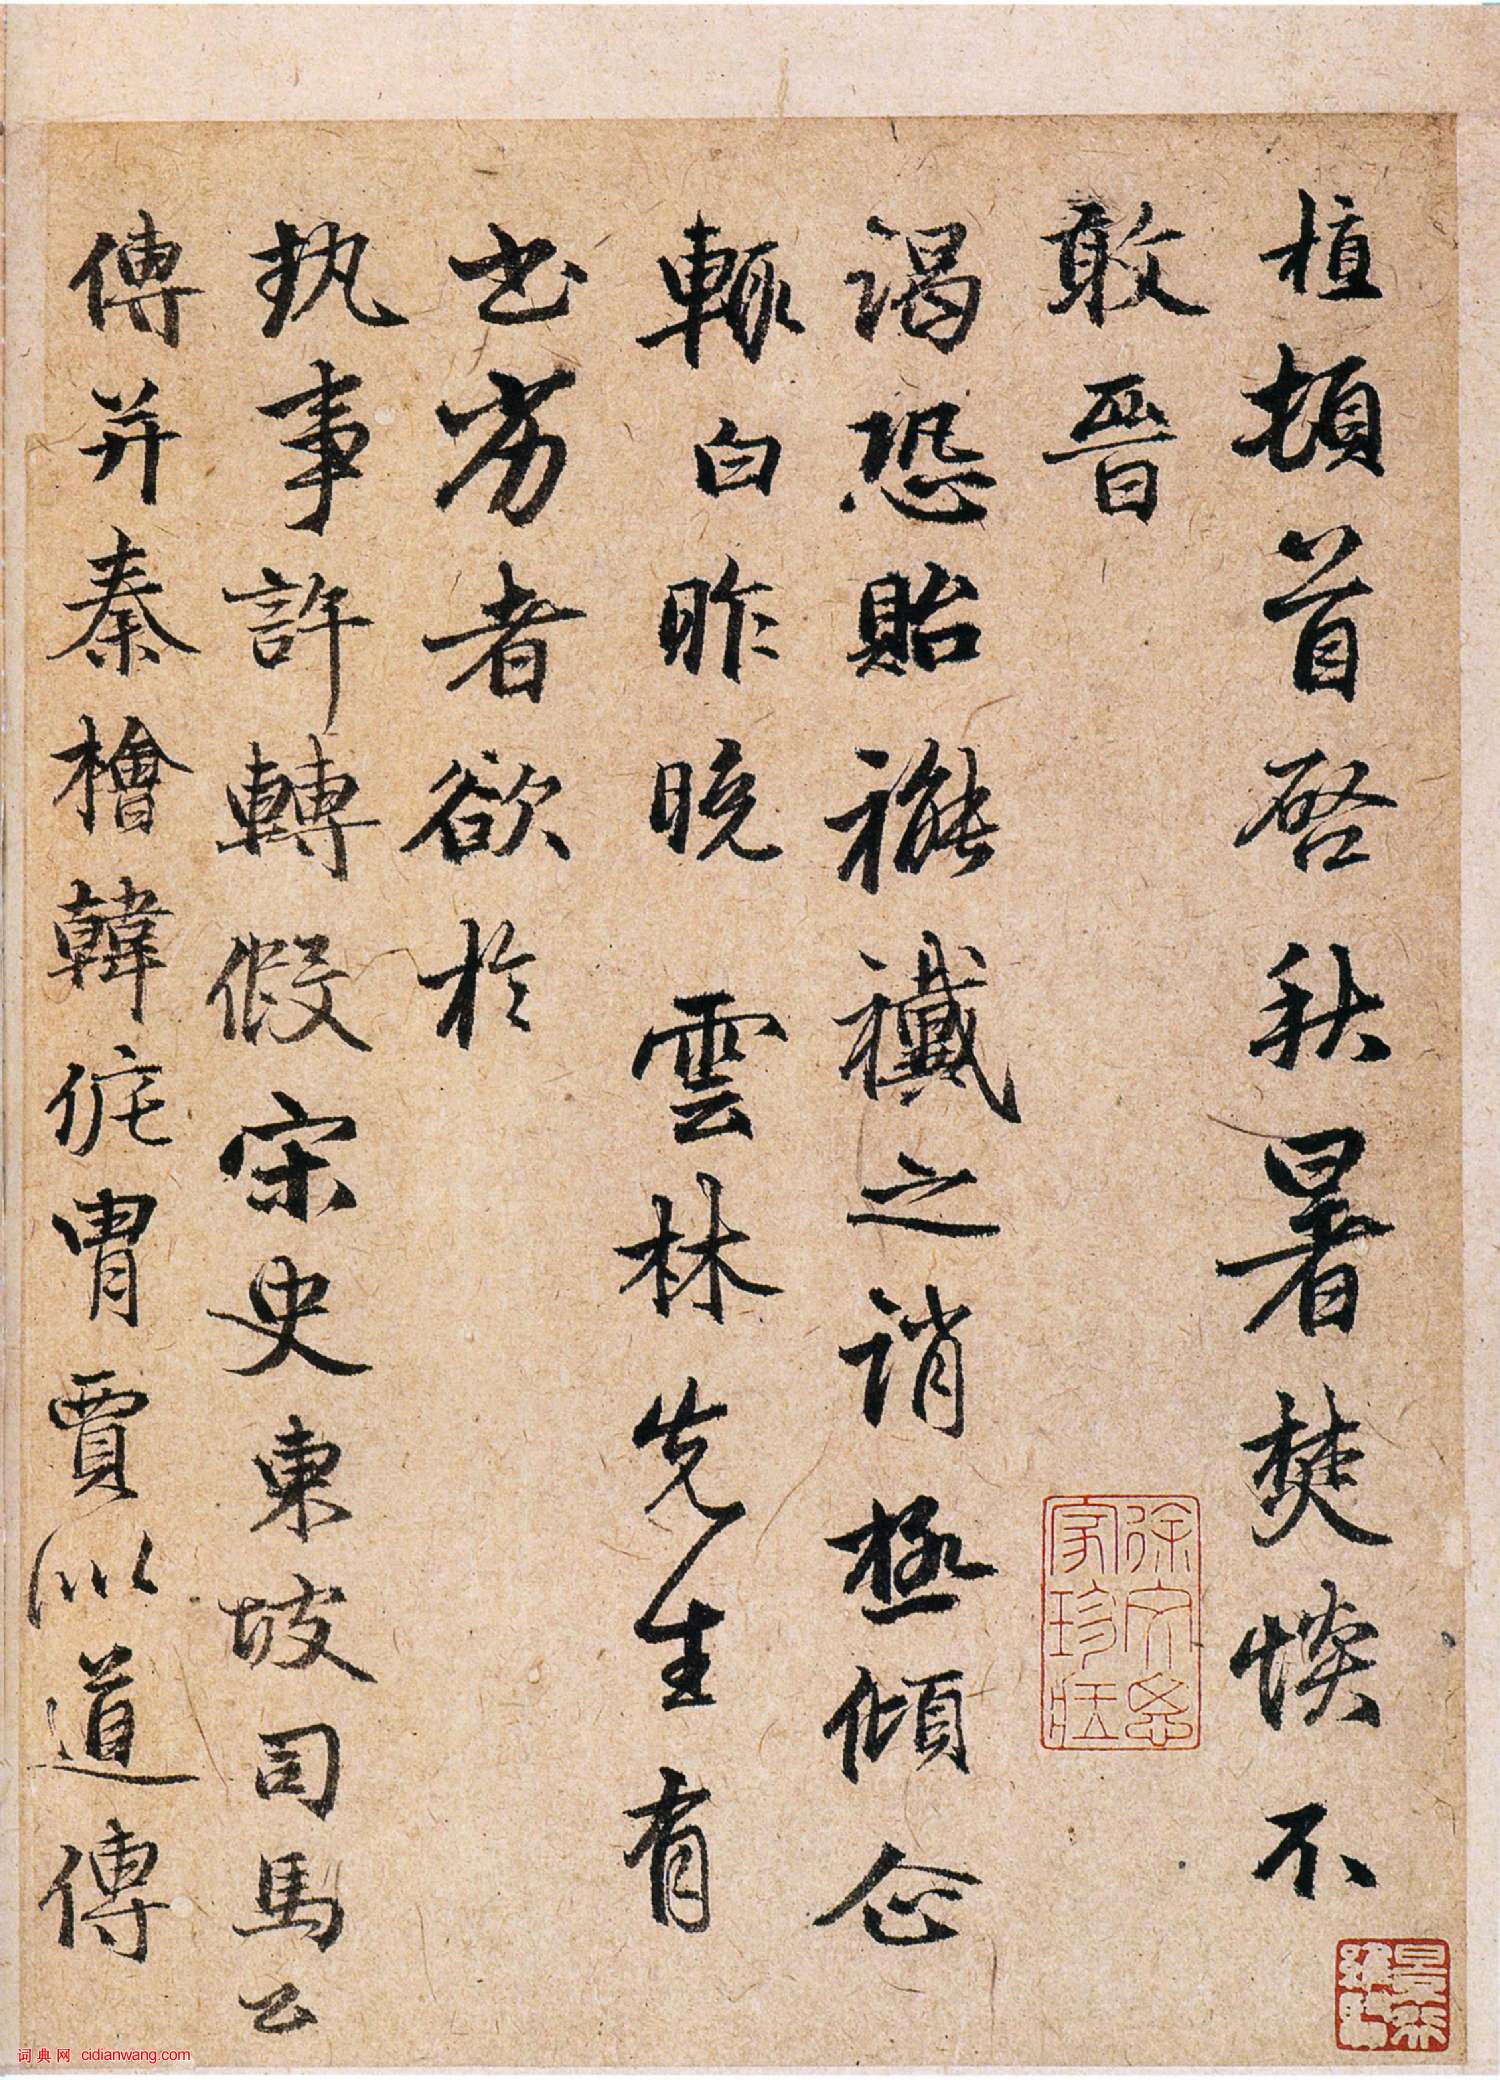 植頓首啓秋暑焚惔不
敢晉
謁恐貽褦襶之誚極傾企
輒白昨晚雲林先生有
書劳者欲於
執事許轉假宋史東坡司馬公
傳并秦檜韓侂胄賈似道傳
詞典网 cidianwang.com